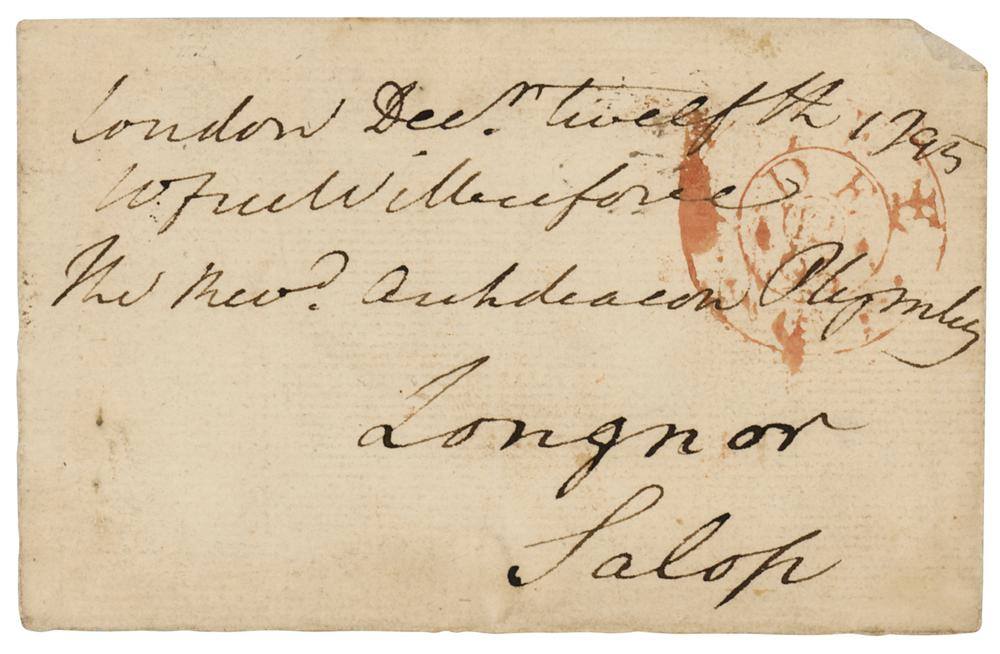 London Decr. twelfth 1795
W free Wilberforce
The Revd. Archdeacon Plymley
Longnor
Salop